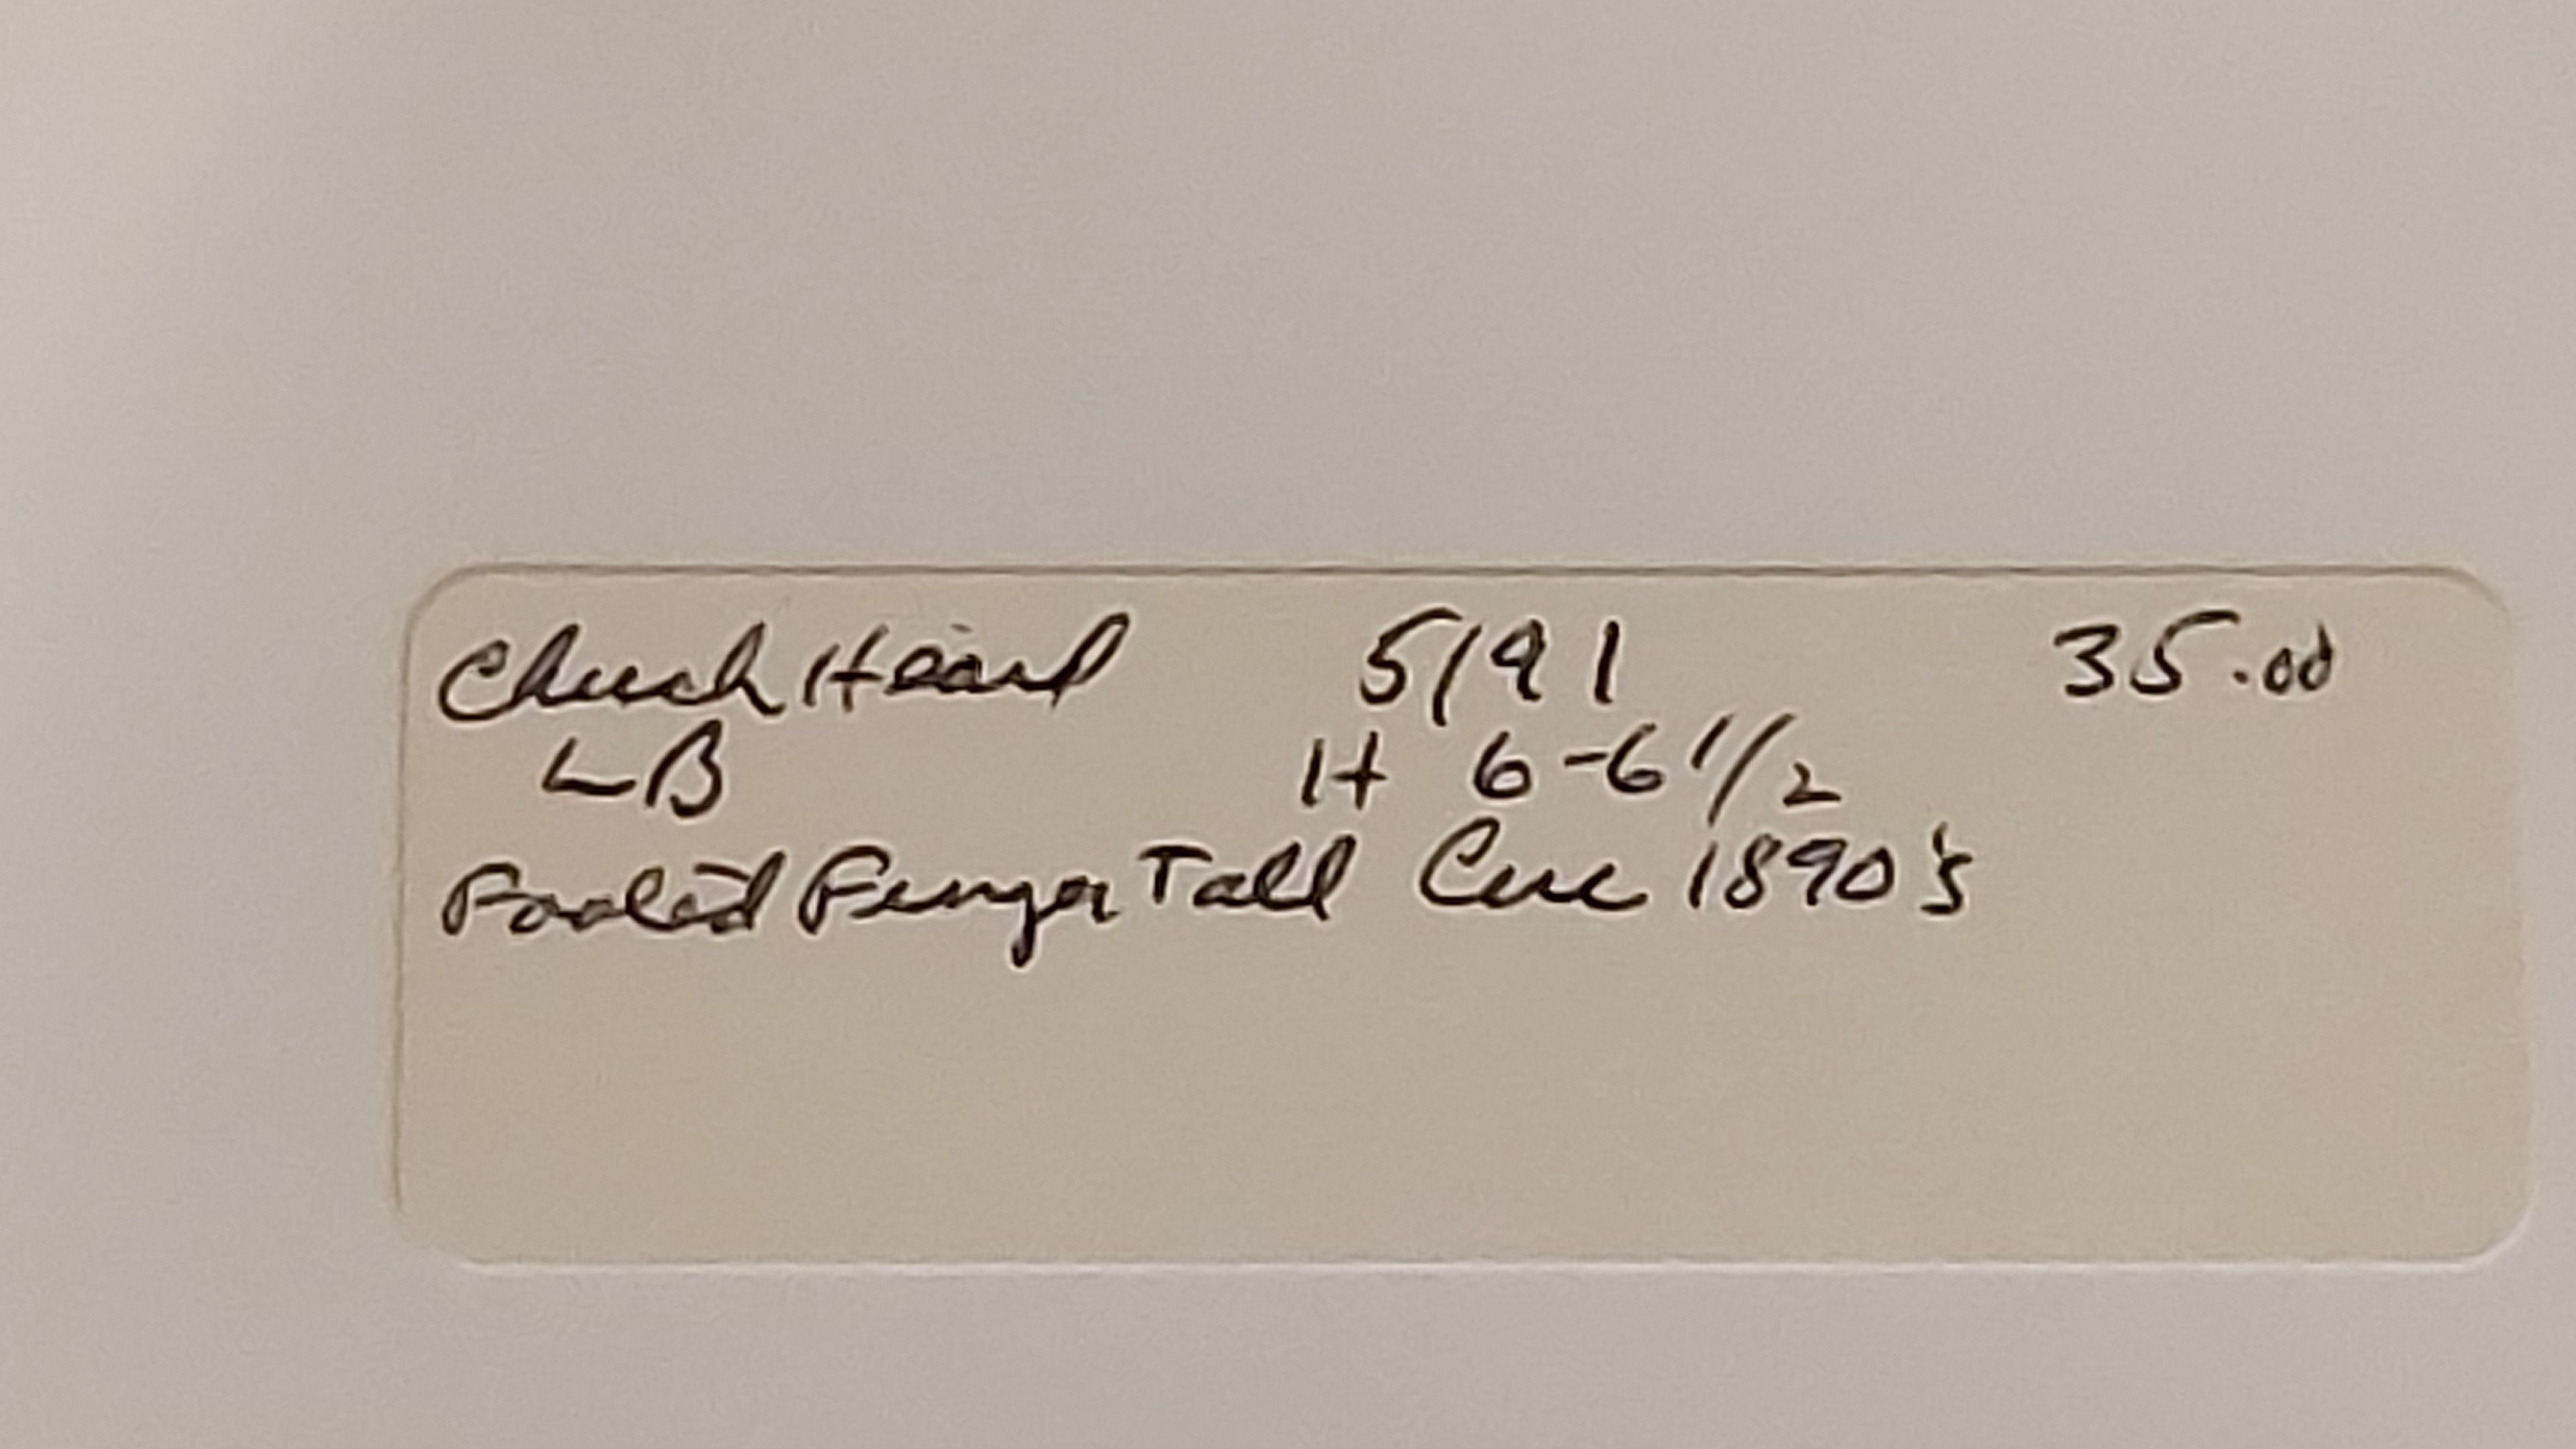 Chuck Heard 5/91 35.00
LB H 6-6 1/2
Footed Finger Tall Circ 1890's